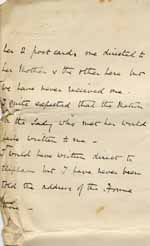 her 2 post cards one directed to
her Mother & the other here but
we have never received one.
I quite expected that the Matron
or the Lady who met her would
have written to me -
I would have written direct to
but I have never been
told the address of the Home